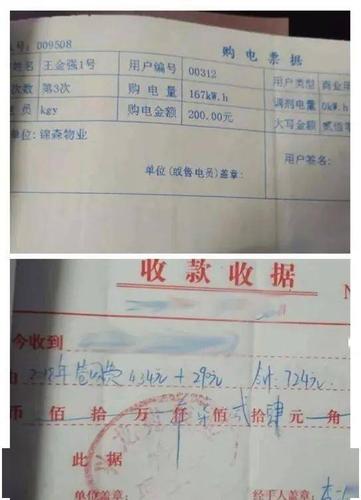 号: 009508
购 电 票 据
姓名 王金强1号 用户编号 00312 用户类型 商业用
次数 第3次 购 电 量 167kW.h 调剂电量 0kW.h
员 kgy 购电金额 200.00元 大写金额 贰佰零
单位: 锦森物业 用户签名:
单位(或售电员)盖章:
收款收据
今收到
434元 + 290元 合计: 724元
币 佰 拾 万 仟 柒佰 贰拾肆元 角
此 据
单位盖章: 经手人盖章: